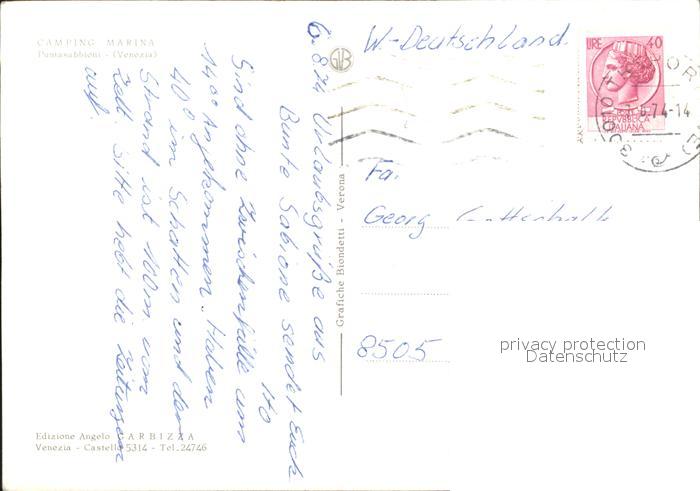 CAMPING MARINA
Puntasabbioni - (Venezia)
6.8.74 Urlaubsgrüße aus
Bunte Sabione sendet Euch
Sind ohne Zwischenfälle um
14° Angekommen. Haben
40° im Schatten und der
Strand ist 100 m vom
Zelt. Bitte hebt die Zeitungen
auf.
Edizione Angelo GARBIZZA
Venezia - Castello 5314 - Tel. 24746
Grafiche Biondetti - Verona
W.-Deutschland.
LIRE 40
REPVBBLICA
ITALIANA
74-14
Fa.
Georg
8505
privacy protection
Datenschutz